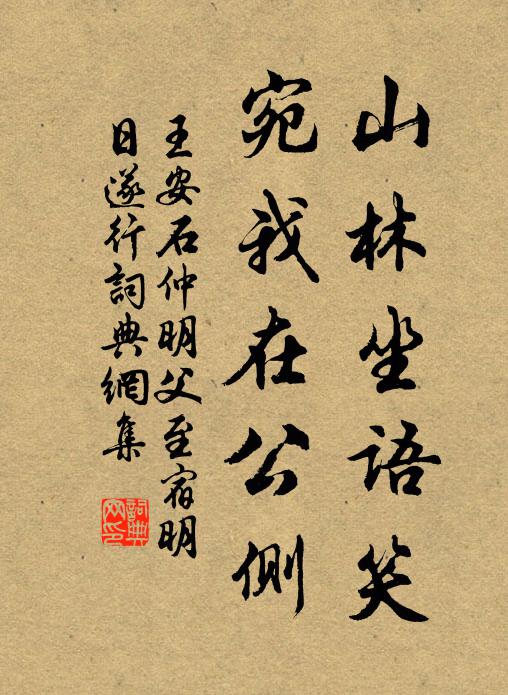 山林坐語笑
宛我在公側
王安石仲明父至宿明
日遂行詞典網集
詞典
网印